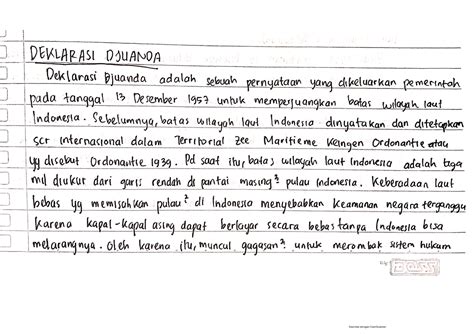 DEKLARASI DJUANDA
Deklarasi Djuanda adalah sebuah pernyataan yang dikeluarkan pemerintah
pada tanggal 13 Desember 1957 untuk memperjuangkan batas wilayah laut
Indonesia. Sebelumnya, batas wilayah laut Indonesia dinyatakan dan ditetapkan
scr internasional dalam Territorial Zee Maritieme Keingen Ordonantie atau
yg disebut Ordonantie 1939. Pd saat itu, batas wilayah laut Indonesia adalah tiga
mil diukur dari garis rendah di pantai masing² pulau Indonesia. Keberadaan laut
bebas yg memisahkan pulau² di Indonesia menyebabkan keamanan negara terganggu
karena kapal-kapal asing dapat berlayar secara bebas tanpa Indonesia bisa
melarangnya. Oleh karena itu, muncul gagasan² untuk merombak sistem hukum
BOSS